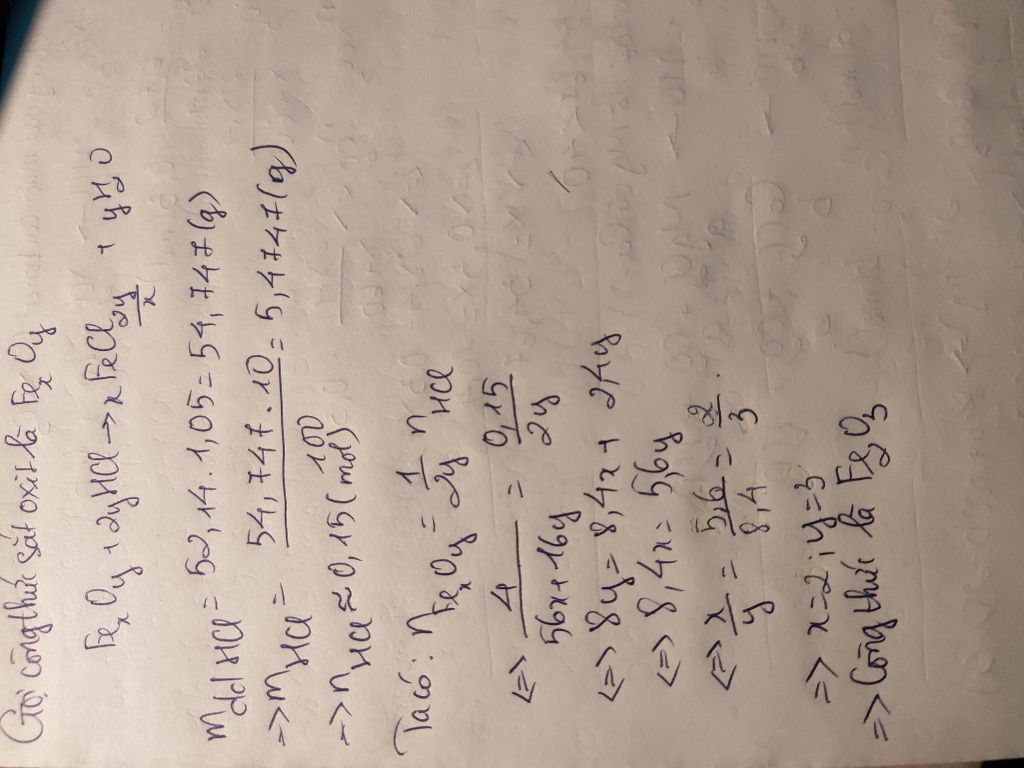 Gọi công thức sắt oxit là FexOy
FexOy + 2yHCl → xFeCl2y/x + yH2O
mddHCl = 52,14.1,05=54,747(g)
=> mHCl = 54,747.10/100 = 5,4747(g)
=> nHCl ≈ 0,15(mol)
Ta có: nFexOy = 1/2y nHCl
<=> 4/56x+16y = 0,15/2y
<=> 8y = 8,4x + 2,4y
<=> 8,4x = 5,6y
<=> x/y = 5,6/8,4 = 2/3.
=> x=2;y=3
=> Công thức là Fe2O3